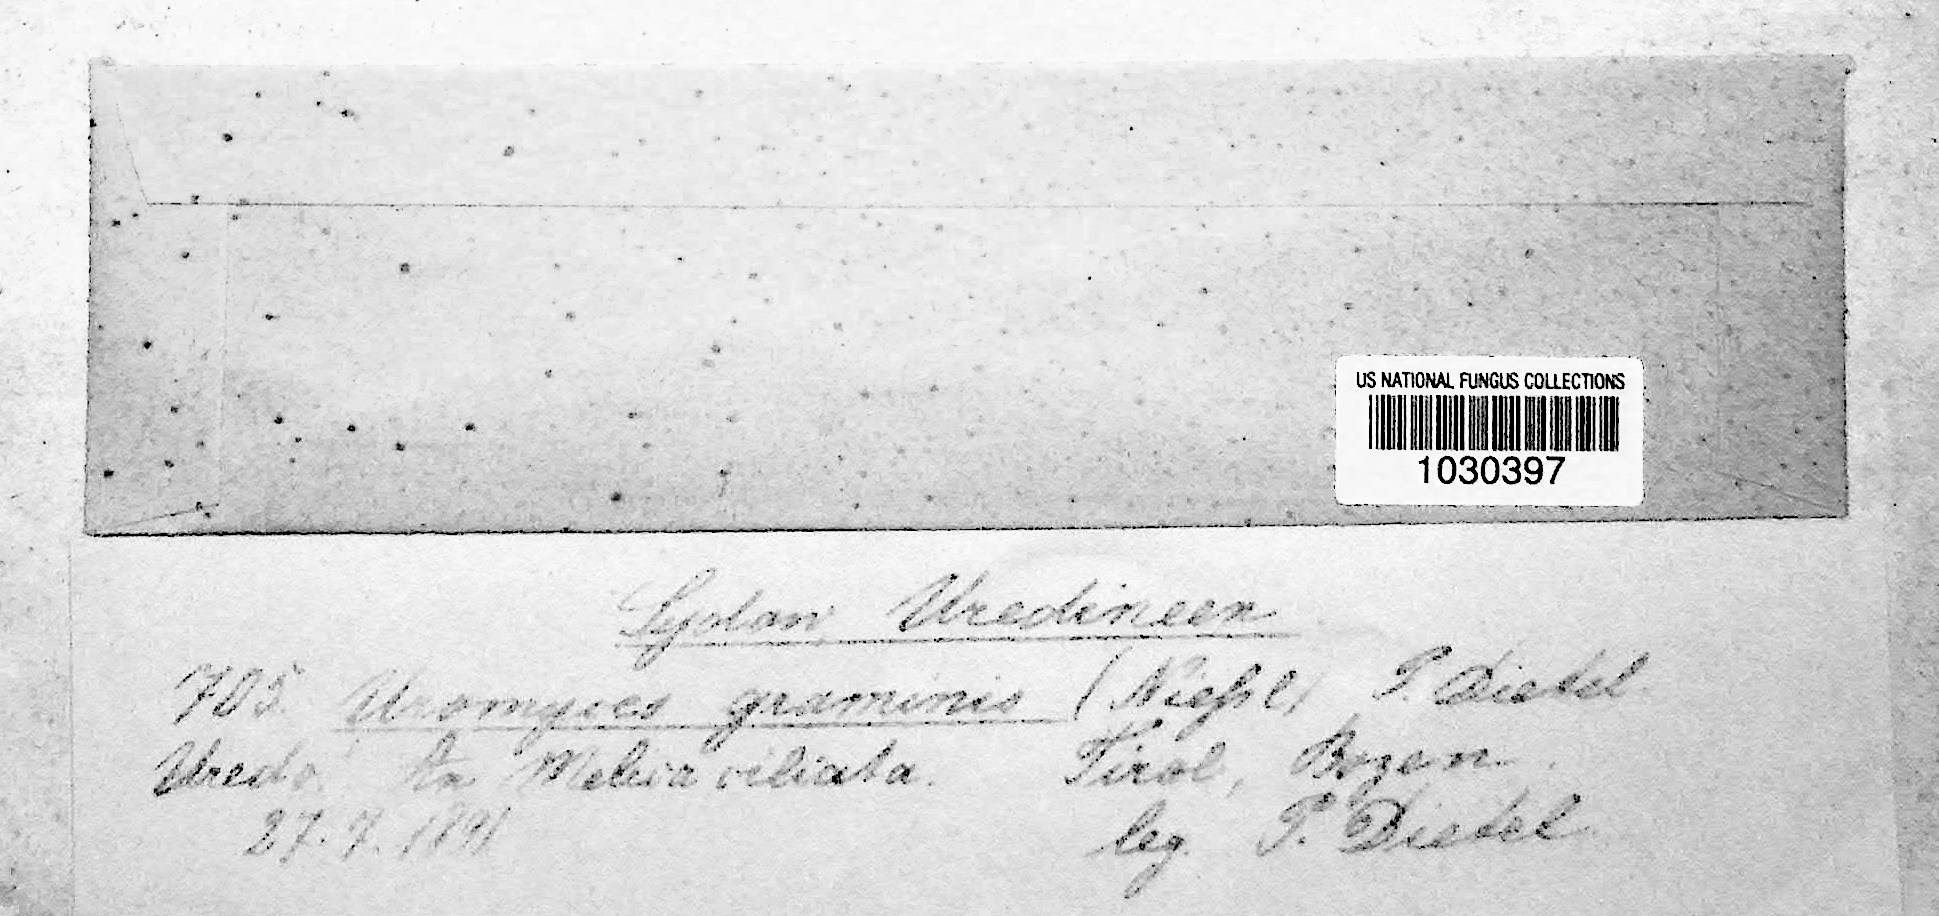 US NATIONAL FUNGUS COLLECTIONS
1030397
Sydow, Uredineen
705. Uromyces graminis (Nießl) P. Dietel.
Uredo. An Melica ciliata. Tirol, Bozen.
27. 7. 1891 leg. P. Dietel